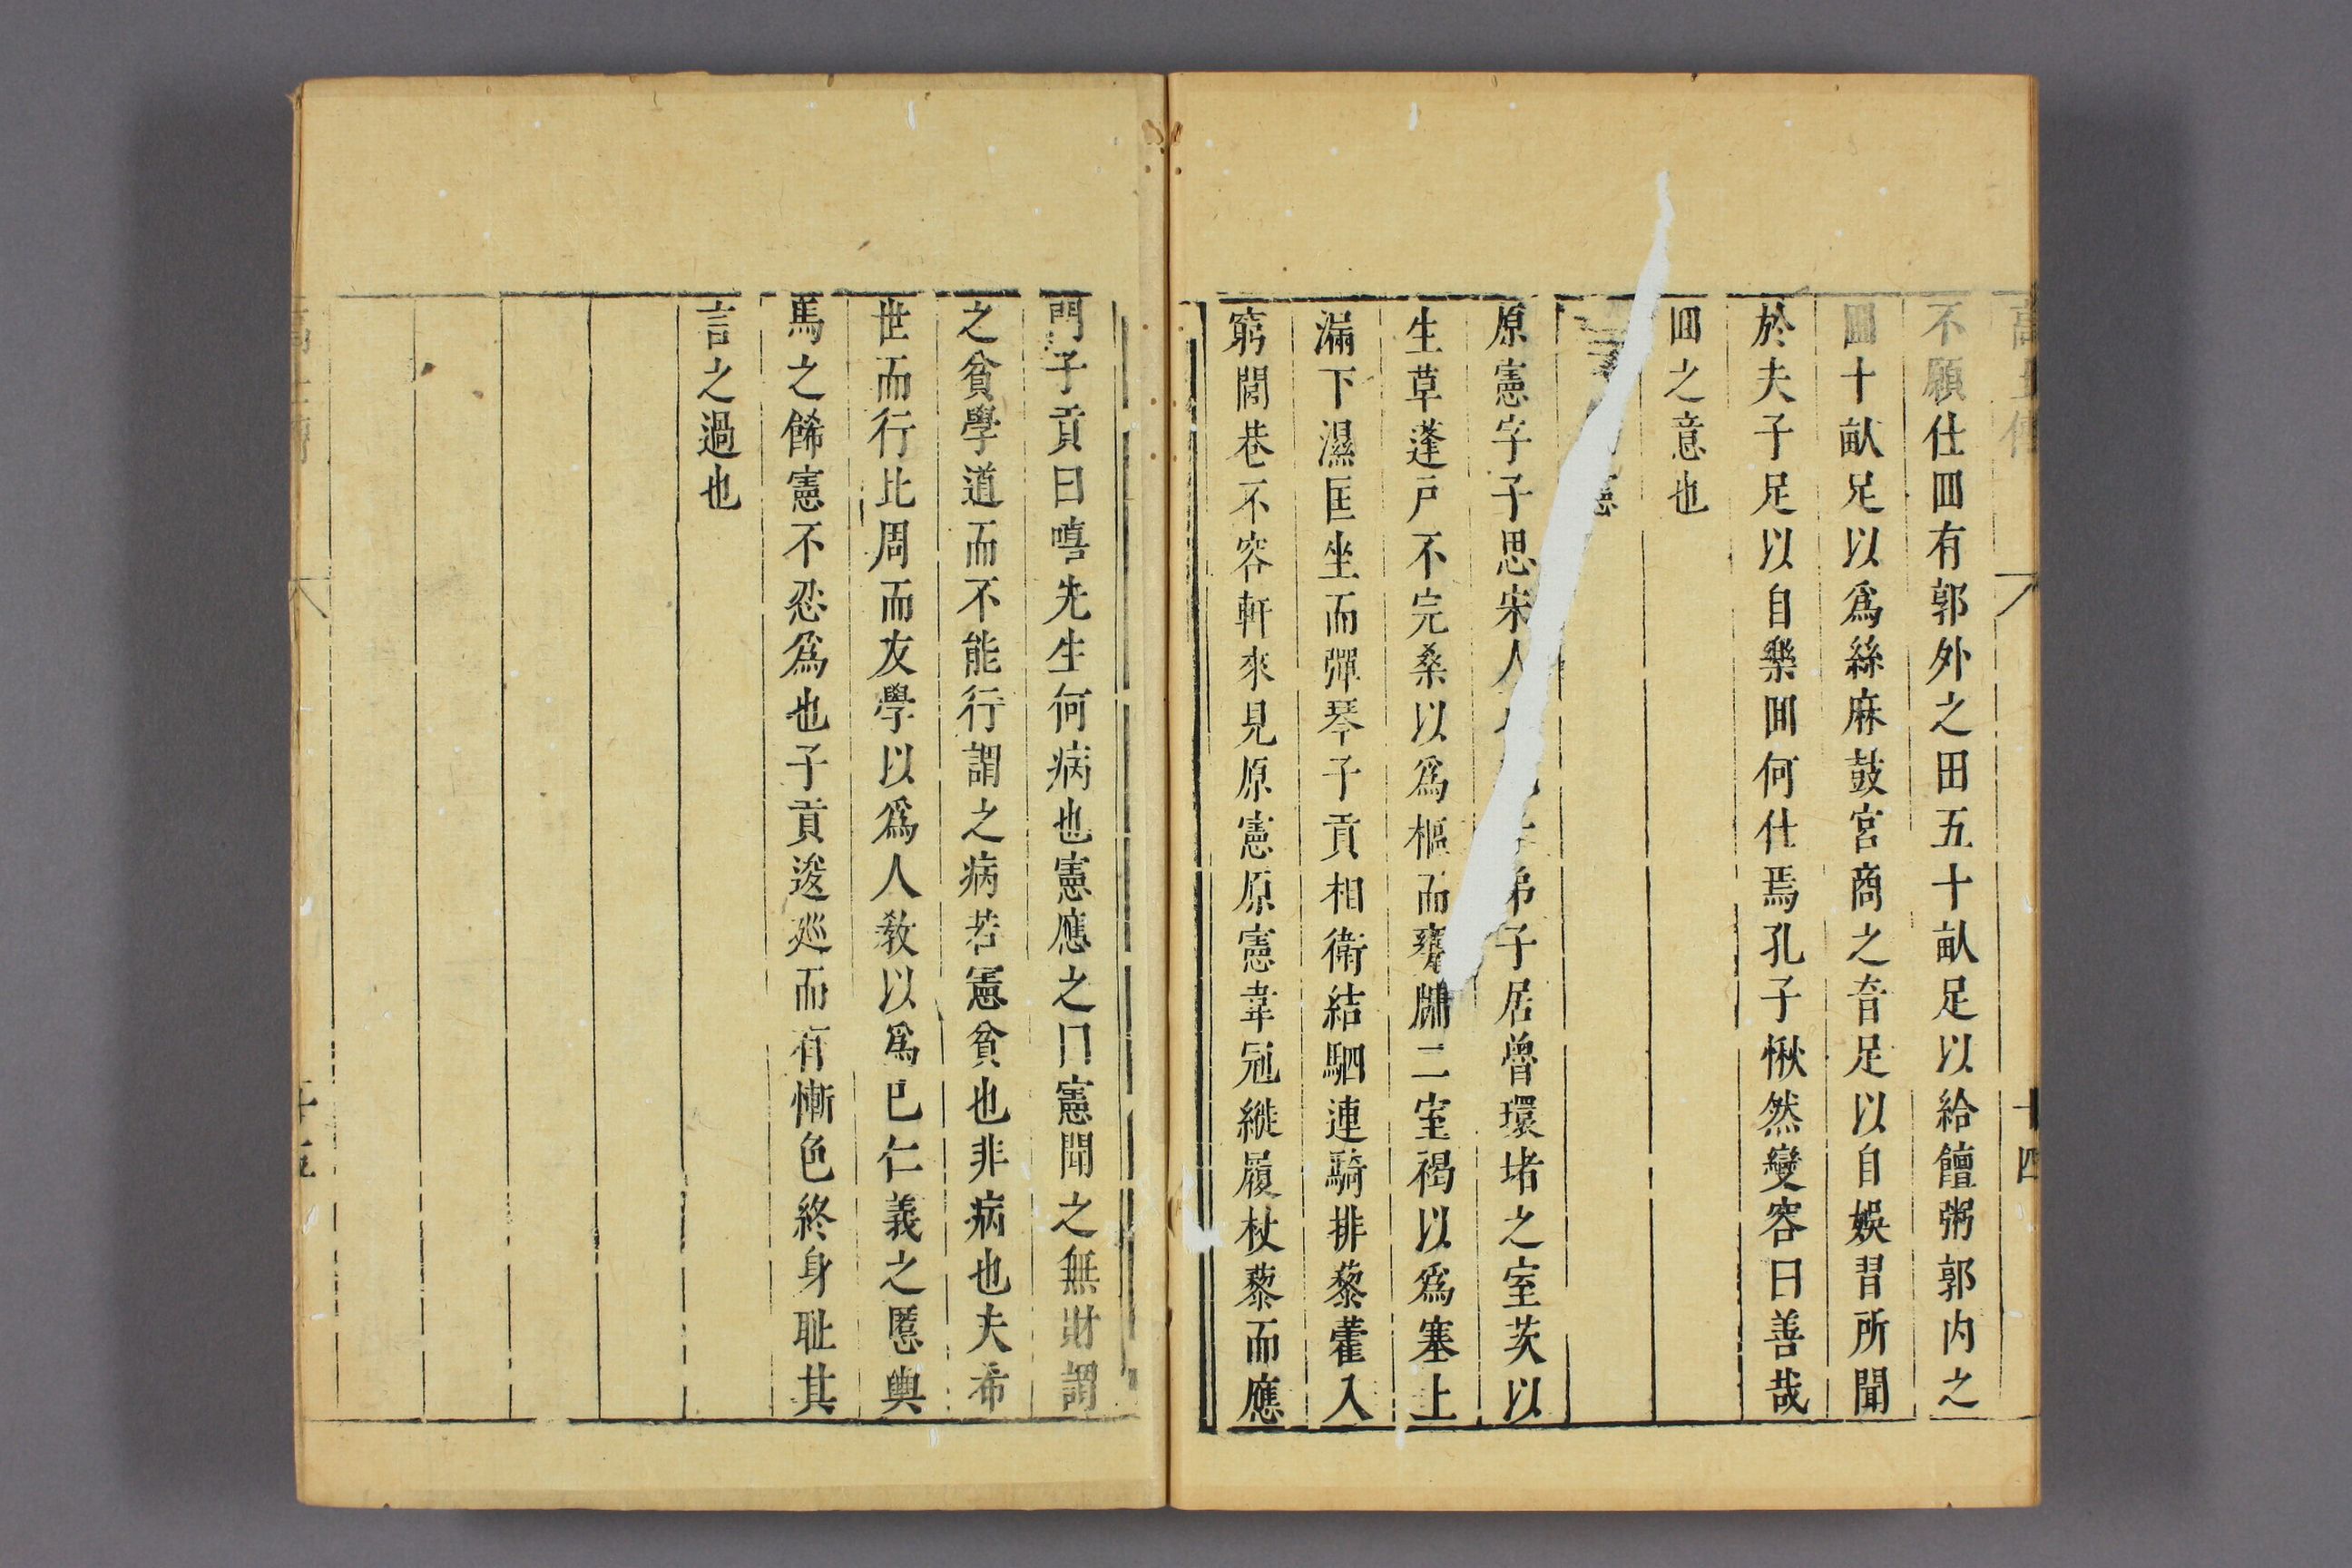 高士傳 十四
不願仕囬有郭外之田五十畝足以給饘粥郭内之
圃十畝足以爲絲麻鼓宫商之音足以自娛習所聞
於夫子足以自樂囬何仕焉孔子愀然變容曰善哉
囬之意也
憲
原憲字子思宋人弟子居魯環堵之室茨以
生草蓬戸不完桑以爲樞而甕牖二室褐以爲塞上
漏下濕匡坐而彈琴子貢相衛結駟連騎排藜藿入
窮閻巷不容軒來見原憲原憲韋冠縰履杖藜而應
門子貢曰嘻先生何病也憲應之曰憲聞之無財謂
之貧學道而不能行謂之病若憲貧也非病也夫希
世而行比周而友學以爲人教以爲已仁義之慝輿
馬之餙憲不忍爲也子貢逡廵而有慚色終身耻其
言之過也